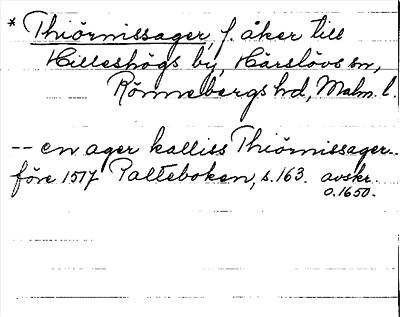 * Thiörnissager, f. åker till
Hilleshögs by, Härslövs sn,
Rönnebergs hd, Malm. l.
-- en ager kalliss Thiörnissager..
före 1517 Palteboken, s. 163. avskr.
o. 1650.